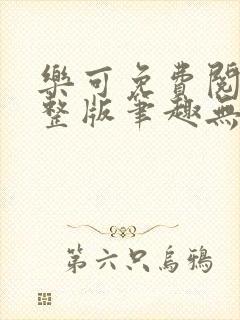 樂可免費閱
整版筆趣無
第六只烏鴉